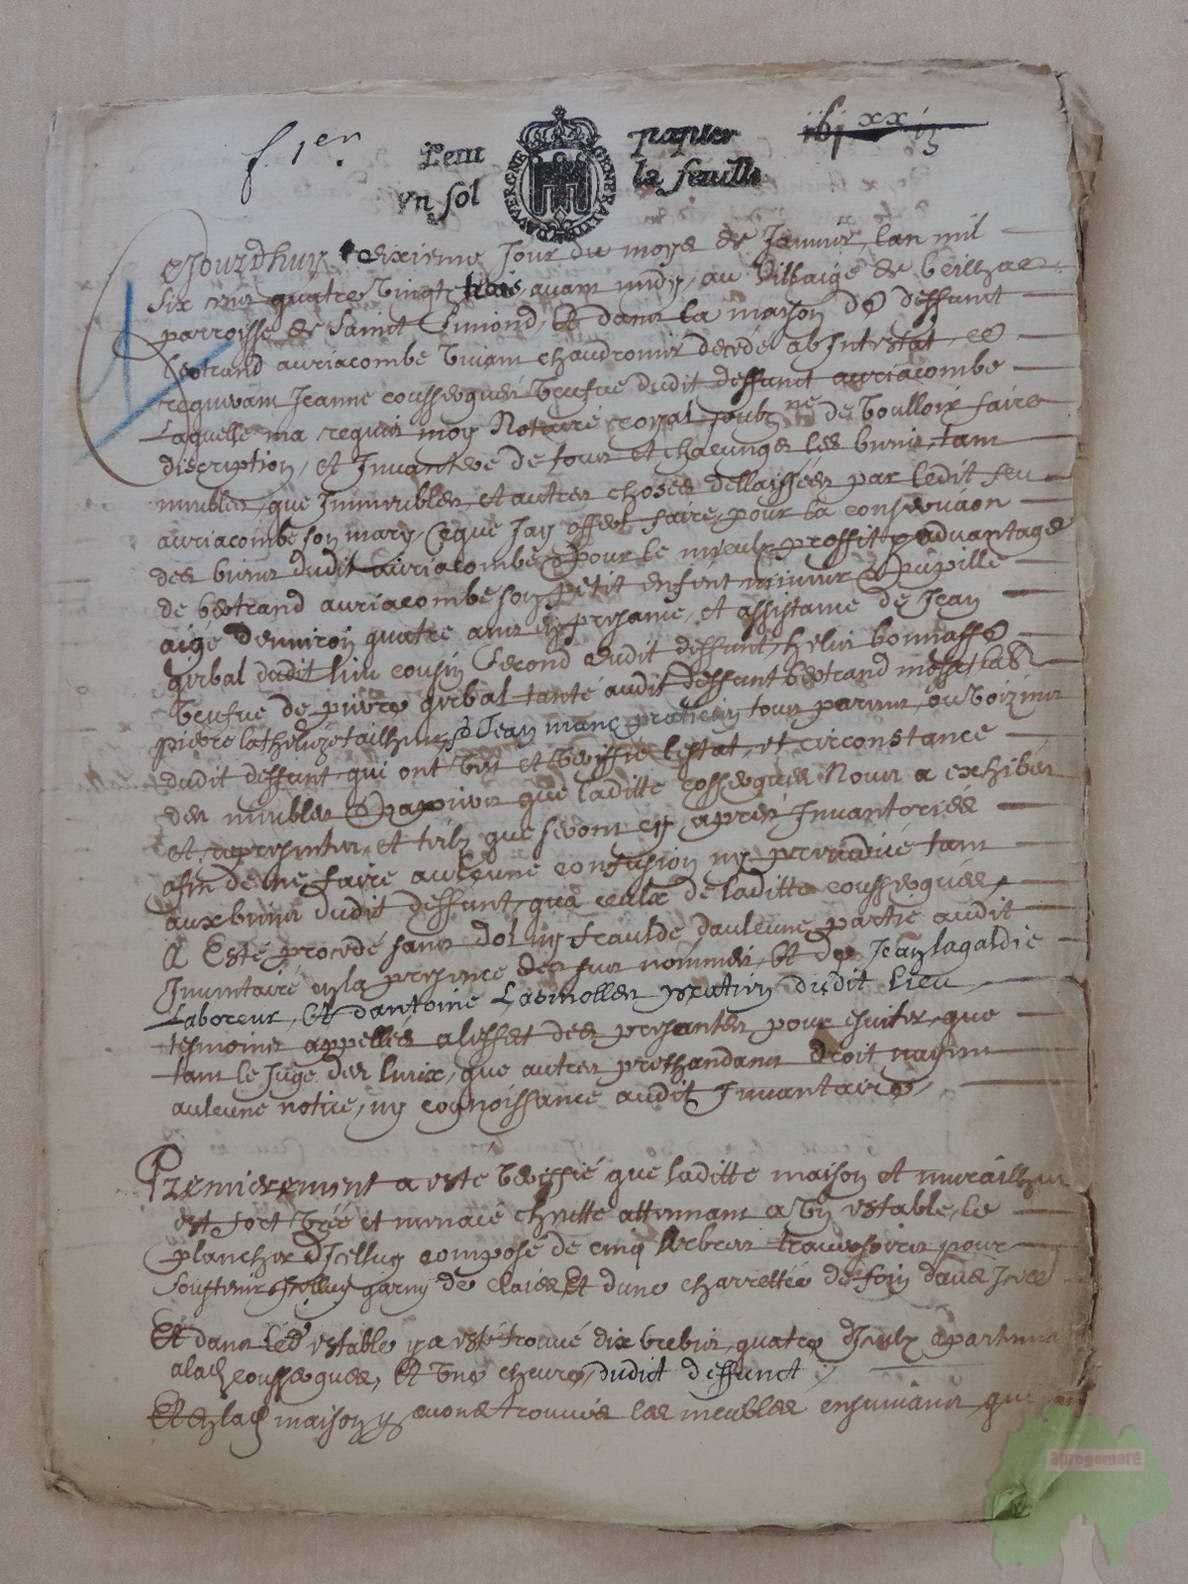 f. 1er
Petit papier
vn sol la feuille
D'AVVERGNE GENERALITE
Ejourdhuy dixieme jour du moys de Janvier lan mil
six cens quatre vingtz trois avant midy, au villaige de
parroisse de Sainct Simond, et dans la maison de deffunct
Bertrand auriacombe vivant chaudronier decedé abintestat, et
requerant Jeanne cousserguer veufue dudit deffunct auriacombe
Laquelle ma requis moy No.re royal soubz.ne de voulloir faire
discription, et Invantere de tous et chacungz les biens tant
meubles, que Immeubles, et autres choses dellaissées par ledit feu
auriacombe son mary, ce que Jay offert faire, pour la conservaon
des biens dudit auriacombe, pour le mieulx proffit advantage
de bertrand auriacombe son petit enfent mineur et pupille
aigé denviron quatre ans en presance, et assistance de Jean
girbal dudit lieu cousin second dudit deffunt, helix bonnaffé
veufue de pierre girbal tante audit deffunt bertrand
pierre Jean praticien tous parens, ou voizins
dudit deffunt, qui ont veu et veriffié lestat, et circonstance
des meubles et papiers que laditte cousserguer Nous a exhibés
et representes, et telz que seront cy apres Invantories
afin de ne faire aulcune confusion ny preiudice tant
aux biens dudit deffunt, qua ceulx de laditte cousserguer,
A Esté procedé sans dol ny fraulde daulcune partie audit
Inventaire en la presence des sus nommés, et de Jean lagaldie
Laboreur, et dantoine Lasmolles praticien dudit lieu
tesmoins appelles a leffect des presantes, pour esviter, que
tant le Juge des lieux, que autres prethandans droit nayent
aulcune notice, ny cognoissance audit Invantaire,
Premierement a esté veriffié que laditte maison et murailhes
est fort vieé et menace cheutte attenant a vn estable, le
plancher dicelluy composé de cinq arbres traversiers pour
soustenir icelluy garny de claies, Et dune charrettée de foin
Et dans led estable y a esté trouvé dix brebis, quatre diceulx apartenant
a lad cousserguer, Et vne chevre, dudict deffunct
Et en lad maison y avons trouvés les meubles ensuivans, que
abregomare